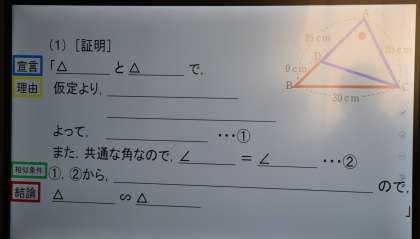 (1) [証明]
宣言 「△ と △ で,
理由 仮定より,
よって, …①
また, 共通な角なので, ∠ = ∠ …②
相似条件 ①, ②から, ので,
結論 △ ∽ △ 」
A
25cm
20cm
D
9cm
B
C
30cm